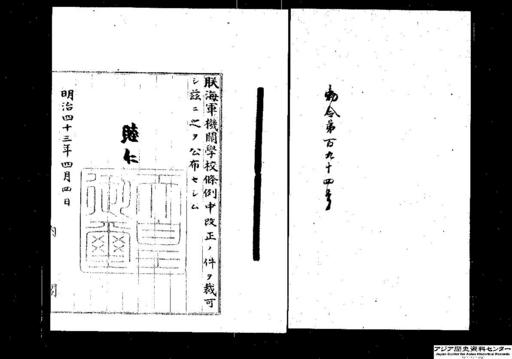 勅令第百九十四号
朕海軍機關學校條例中改正ノ件ヲ裁可
シ茲ニ之ヲ公布セシム
睦仁
天皇御璽
明治四十三年四月四日
内閣
アジア歴史資料センター
Japan Center for Asian Historical Records